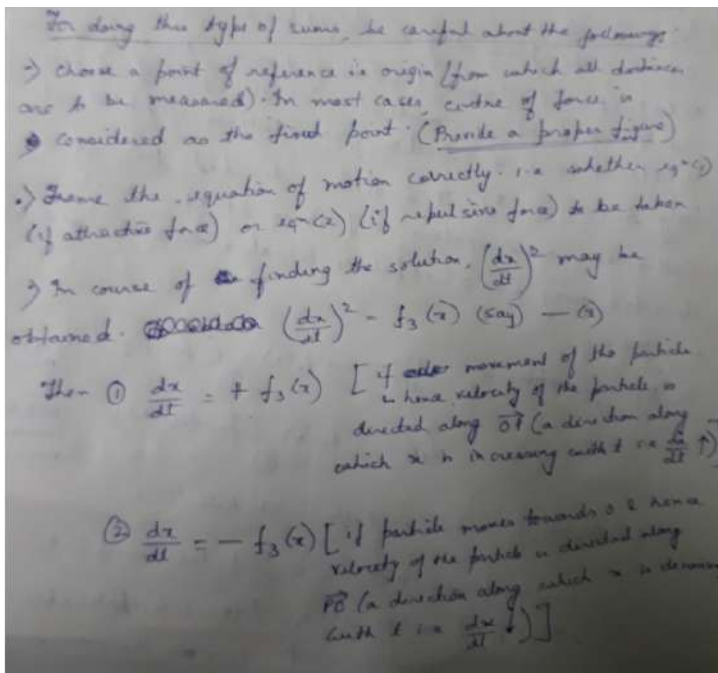 For doing this type of sums, be careful about the followings:
→ choose a point of reference i.e origin (from which all distances
are to be measured). In most cases, centre of force is
considered as the fixed point. (Provide a proper figure)
•) Frame the equation of motion correctly. i.e whether eqⁿ(1)
(if attractive force) or eqⁿ(2) (if repulsive force) to be taken
→ In course of finding the solution, (dx/dt)² may be
obtained. (dx/dt)² = f₃(x) (say) — (3)
Then ① dx/dt = + f₃(x) [if movement of the particle
& hence velocity of the particle is
directed along OP (a direction along
which x is increasing with t i.e dx/dt ↑)]
② dx/dt = - f₃(x) [if particle moves towards O & hence
velocity of the particle is directed along
PO (a direction along which x is
with t i.e dx/dt ↓)]